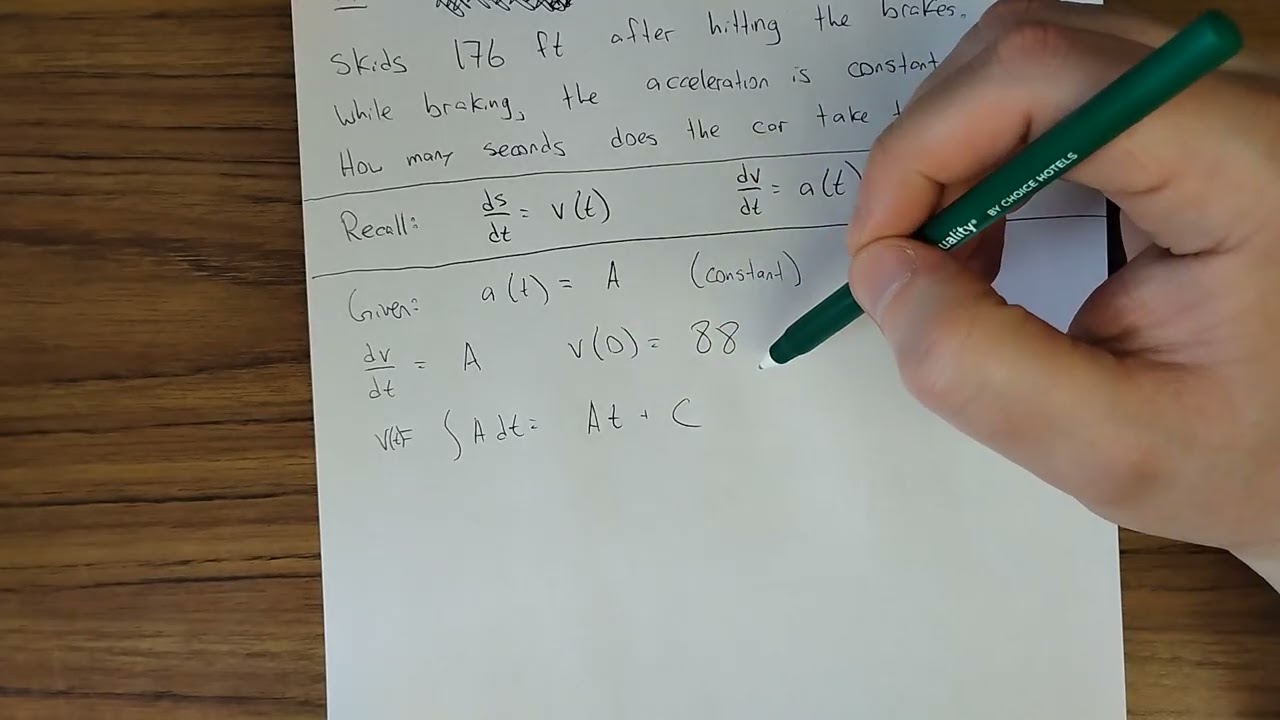 skids 176 ft after hitting the brakes.
While braking, the acceleration is constant
How many seconds does the car take
Recall: ds/dt = v(t) dv/dt = a(t)
Given: a(t) = A (constant)
dv/dt = A v(0) = 88
v(t)= ∫ A dt = At + C
uality® BY CHOICE HOTELS